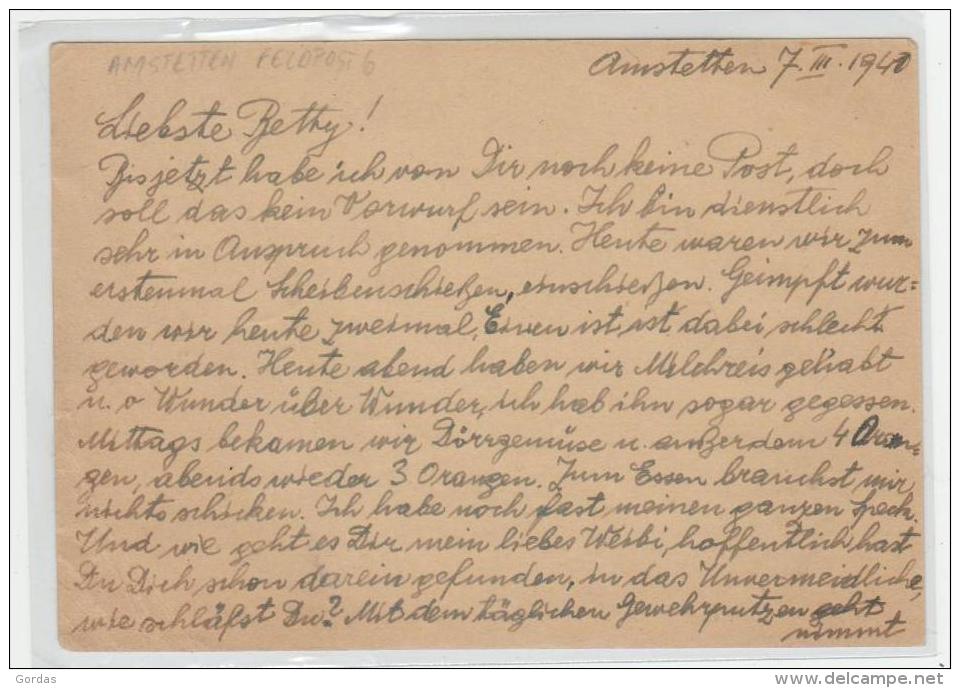 AMSTETTEN FELDPOST 6
Amstetten 7. III. 1940
Liebste Betty!
Bis jetzt habe ich von Dir noch keine Post, doch
soll das kein Vorwurf sein. Ich bin dienstlich
sehr in Anspruch genommen. Heute waren wir zum
erstenmal Scheibenschießen, einschießen. Geimpft wur=
den wir heute zweimal, Einen ist ist dabei schlecht
geworden. Heute abend haben wir Milchreis gehabt
u. o Wunder über Wunder, ich hab ihn sogar gegessen.
Mittags bekamen wir Dörrgemüse u. außerdem 4 Oran=
gen, abends wieder 3 Orangen. Zum Essen brauchst mir
nichts schicken. Ich habe noch fast meinen ganzen Speck.
Und wie geht es Dir mein liebes Weibi, hoffentlich hast
Du Dich schon darein gefunden, in das Unvermeidliche,
wie schläfst Du? Mit dem täglichen Gewehrputzen geht
nimmt
Gordas
www.delcampe.net